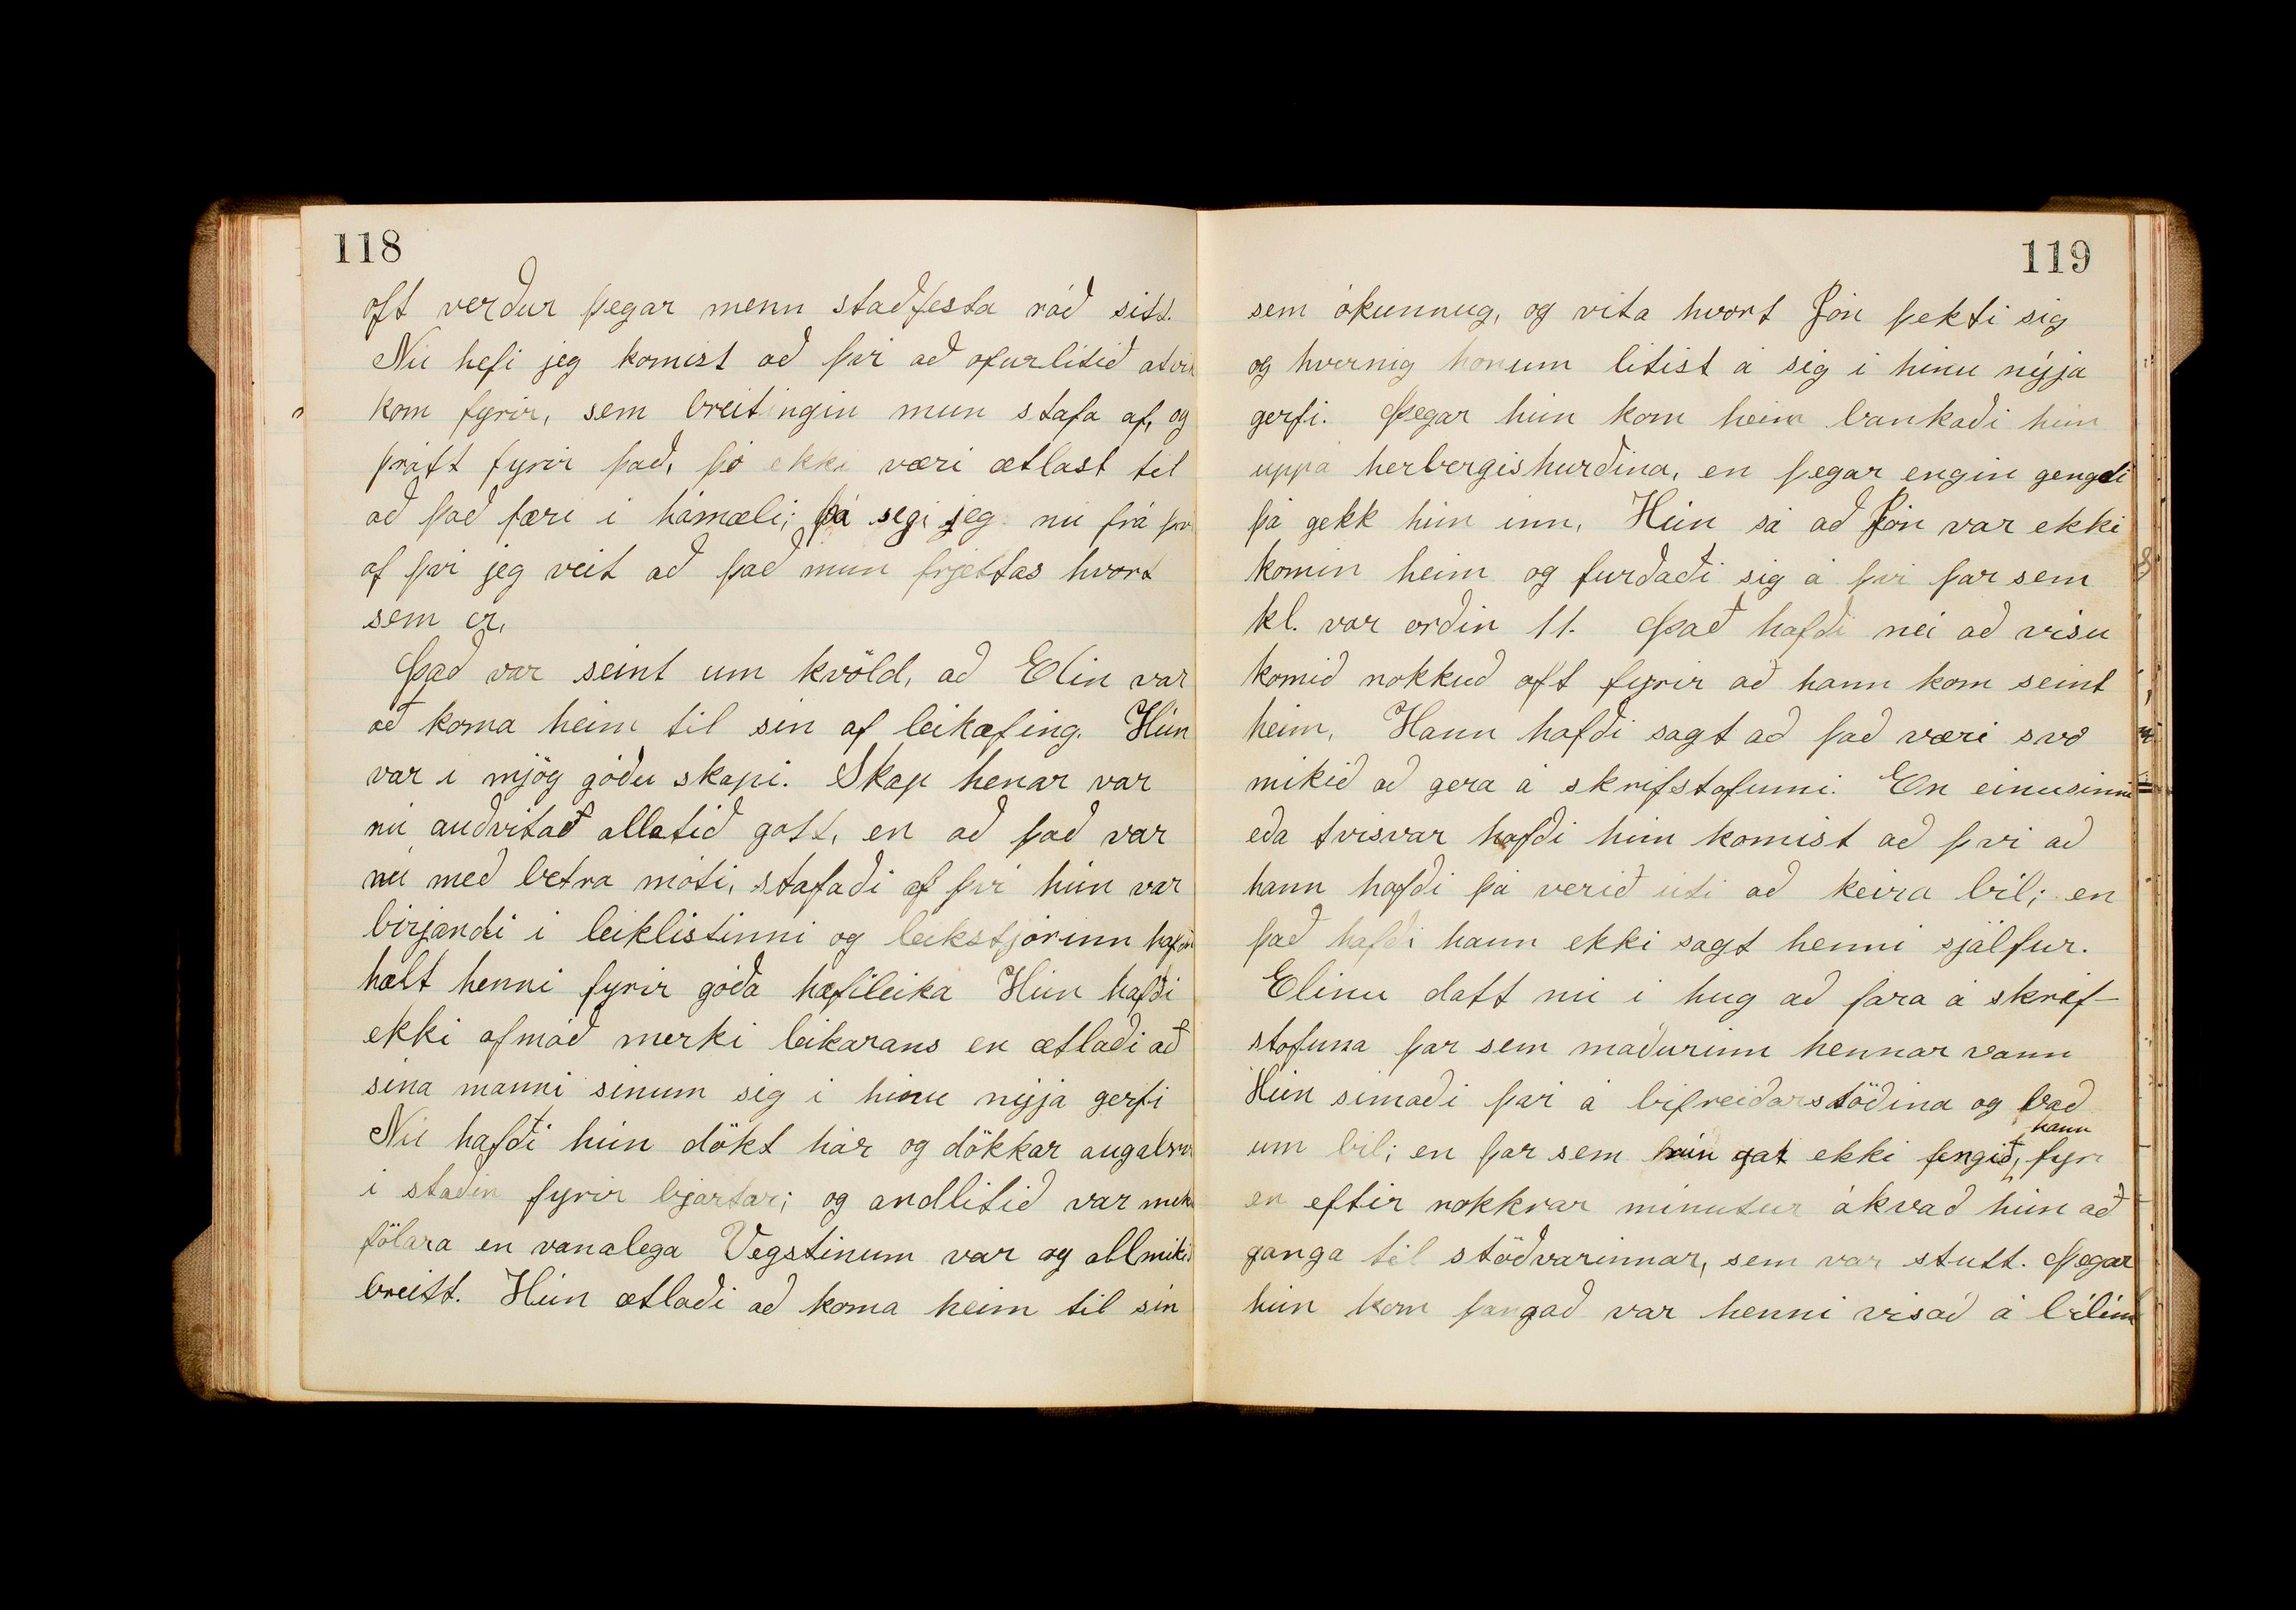 118
oft verður þegar menn staðfesta ráð sitt.
Nú hefi jeg komist að því að ofurlítið atvik
kom fyrir, sem breitingin mun stafa af, og
þrátt fyrir það, þó ekki væri ætlast til
að það færi í hámæli; þá segi jeg nú frá því
af því jeg veit að það mun frjettas hvort
sem er.
Það var seint um kvöld, að Elin var
að koma heim til sín af leikæfing. Hún
var í mjög góðu skapi. Skap henar var
nú auðvitað allatið gott, en að það var
nú með betra móti, stafaði af því hún var
birjandi i leiklistinni og leikstjórinn hafði
hælt henni fyrir góða hæfileika Hún hafði
ekki afmáð merki leikarans en ætlaði að
sína manni sinum sig i hinu nýja gerfi
Nú hafði hún dökt hár og dökkar augabrú
i staðin fyrir bjartar; og andlitið var mik
fölara en vanalega Vegstinum var og allmikið
breitt. Hún ætlaði að koma heim til sin
119
sem ókunnug, og vita hvort Jón þekti sig
og hvernig honum litist á sig i hinu nýja
gerfi. Þegar hún kom heim bankaði hún
uppá herbergishurðina, en þegar engin gengdi
þá gekk hún inn. Hún sá að Jón var ekki
komin heim og furðaði sig á því þar sem
kl. var orðin 11. Það hafði nú að visu
komið nokkuð oft fyrir að hann kom seint
heim. Hann hafði sagt að það væri svo
mikið að gera á skrifstofunni. En einusinni
eða tvisvar hafði hún komist að því að
hann hafði þá verið úti að keira bíl; en
það hafði hann ekki sagt henni sjálfur.
Elinu datt nú i hug að fara á skrif-
stofuna þar sem maðurinn hennar vann
Hún simaði því á bifreiðarstöðina og bað
um bíl; en þar sem hún gat ekki fengið hann fyr
en eftir nokkrar mínutur ákvað hún að
ganga til stöðvarinnar, sem var stutt. Þegar
hún kom þangað var henni visað á bílinn